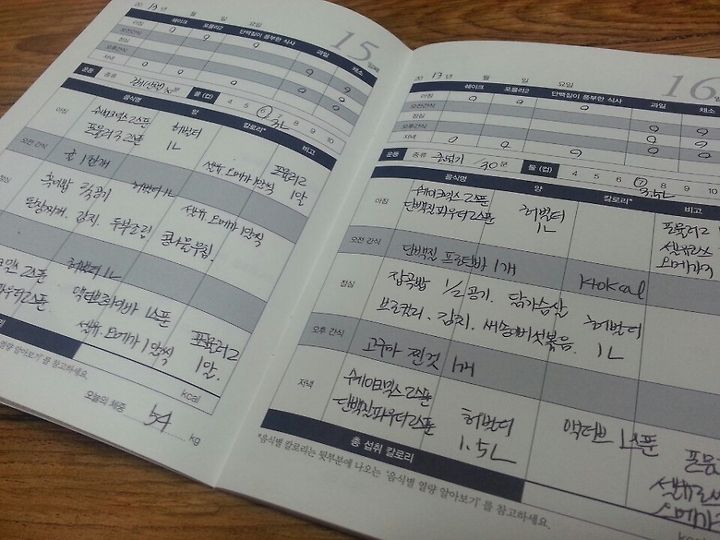 20 13년 월 일 요일
15일째
쉐이크 포뮬라2 단백질이 풍부한 식사 과일 채소
오전간식
점심
오후간식
저녁
운동 종류 30분 물 (컵) 4 5 6 7 8 9 10
3L
음식명 양 칼로리* 비고
아침
쉐이크믹스 2스푼 허벌티 1L
포뮬러2 1알
오전 간식
귤 1개
셀류 오메가 1알씩
흑미밥 2/3공기 허벌티 1L
셀류 오메가 1알씩
된장찌개. 김치. 두부조림. 콩나물무침.
허벌티 1L
액티브화이바 1스푼
셀류 오메가 1알씩
포뮬러2 1알.
kcal
열량 알아보기'를 참고하세요.
오늘의 체중 54 kg
20 13년 월 일 요일
16
쉐이크 포뮬라2 단백질이 풍부한 식사 과일 채소
아침
오전간식
점심
오후간식
저녁
운동 종류 줄넘기 30분 물 (컵) 4 5 6 7 8 9 10
3.5L
음식명 양 칼로리* 비고
아침
쉐이크믹스 2스푼
단백질파우더 2스푼
허벌티 1L
포뮬러2 1
셀류로스
오메가3
오전 간식
단백질 프로틴바 1개
140kcal
점심
잡곡밥 1/2공기. 닭가슴살
브로컬리. 김치. 새송이버섯볶음.
허벌티 1L
오후 간식
고구마 찐것 1개
저녁
쉐이크믹스 2스푼
단백질파우더 2스푼
허벌티 1.5L
액티브 1스푼
포뮬
셀류로스
오메가3
총 섭취 칼로리
*음식별 칼로리는 뒷부분에 나오는 '음식별 열량 알아보기'를 참고하세요.